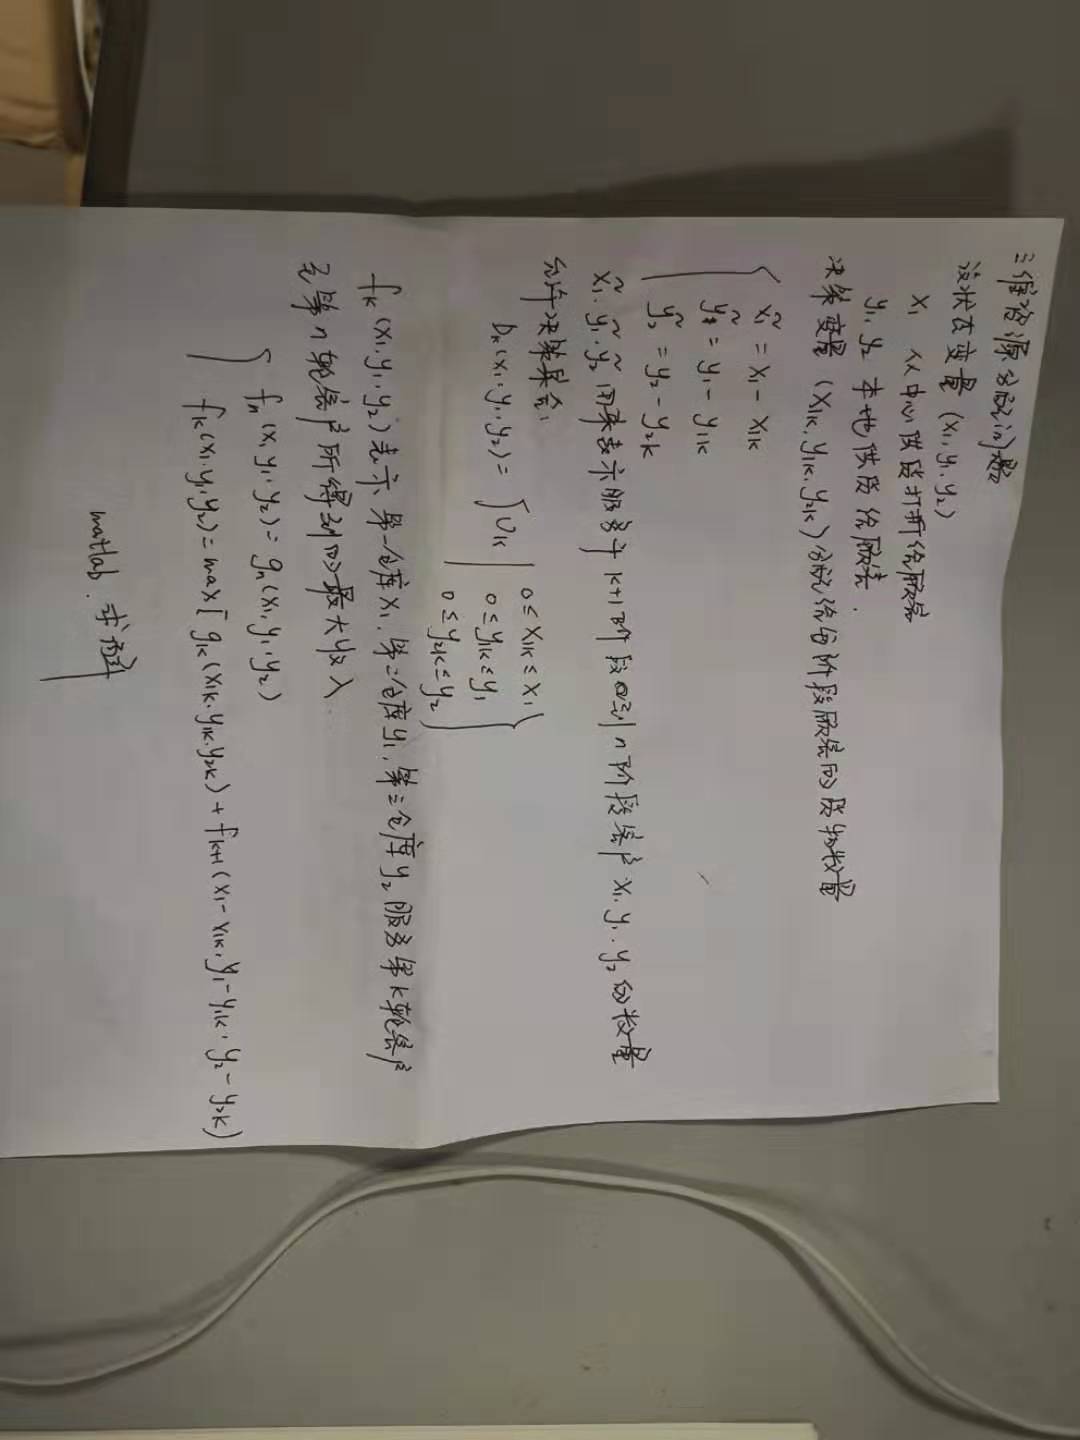 三维资源分配问题
设状态变量 (x₁, y₁, y₂)
x₁ 从中心供货打折给顾客
y₁, y₂ 本地供货给顾客.
决策变量 (x₁ₖ, y₁ₖ, y₂ₖ) 分配给每阶段顾客的货物数量
{ x̃₁ = x₁ - x₁ₖ
ỹ₁ = y₁ - y₁ₖ
ỹ₂ = y₂ - y₂ₖ
x̃₁, ỹ₁, ỹ₂ 用来表示服务于 k+1 阶段到 n 阶段客户 x₁, y₁, y₂ 的数量
允许决策集合:
Dₖ(x₁, y₁, y₂) = { Uₖ | 0 ≤ x₁ₖ ≤ x₁
0 ≤ y₁ₖ ≤ y₁
0 ≤ y₂ₖ ≤ y₂ }
fₖ(x₁, y₁, y₂) 表示 第一仓库 x₁, 第二仓库 y₁, 第三仓库 y₂ 服务第 k 轮客户
至第 n 轮客户所得到的最大收入.
{ fₙ(x₁, y₁, y₂) = gₙ(x₁, y₁, y₂)
fₖ(x₁, y₁, y₂) = max [ gₖ(x₁ₖ, y₁ₖ, y₂ₖ) + fₖ₊₁(x₁ - x₁ₖ, y₁ - y₁ₖ, y₂ - y₂ₖ)
matlab. 求解